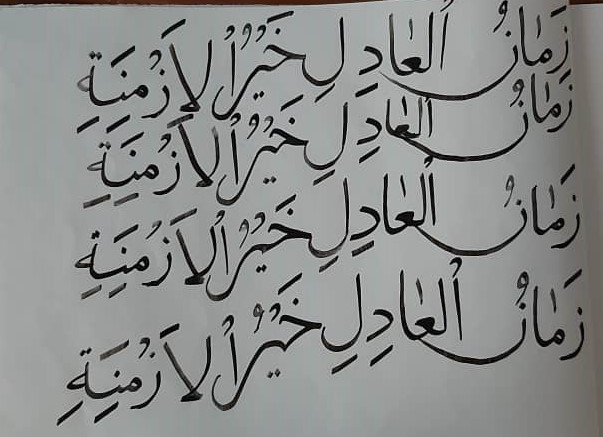 زَمَانُ الْعَادِلِ خَيْرُ الْأَزْمِنَةِ
زَمَانُ الْعَادِلِ خَيْرُ الْأَزْمِنَةِ
زَمَانُ الْعَادِلِ خَيْرُ الْأَزْمِنَةِ
زَمَانُ الْعَادِلِ خَيْرُ الْأَزْمِنَةِ